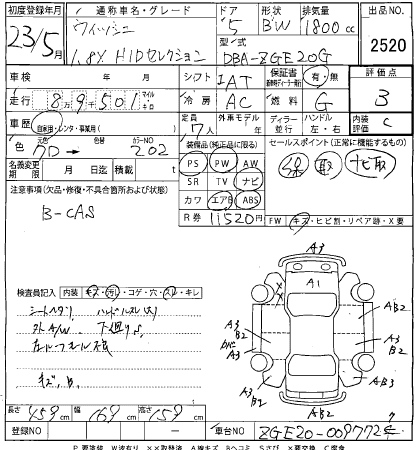 初度登録年月 通称車名・グレード ドア 形状 排気量 出品NO
23年/5月 ウィッシュ 5 BW 1800cc 2520
1.8X HIDセレクション 型式 DBA-ZGE20G
車検 年 月 シフト IAT 保証書 有・無 評価点
走行 8万9千501 マイル キロ 冷房 AC 燃料 G 3
車歴 自家用・レンタ・事業用 定員 7人 外車モデル 年 ディーラー 並行 ハンドル 左・右 内装 C
色 元色 クロ → 色替 カラーNO 202 装備品(純正品に限る) セールスポイント(正常に機能するもの)
名義変更期限 月 日迄 積載量 t PS PW AW
SR TV ナビ
注意事項(欠品・修復・不具合箇所および状態) カワ エアB ABS
B-CAS R券 11520円 FW キズ・ヒビ割・リペア跡・X要
A3
A1
検査員記入 内装 キズ・汚れ・コゲ・穴・スレ・キレ
シートヘタリ ハンドルスレ
外A/W 下廻りS
キズ、B.
A3 B2
A3 B2
A B2
A B2
A B2
A B3
A B2
長さ 459cm 幅 169cm 高さ 159cm
登録NO 車台NO ZGE20-0097724
P要塗装 W波有り XX取替済 A線キズ Bヘコミ Sさび X要交換 C腐食